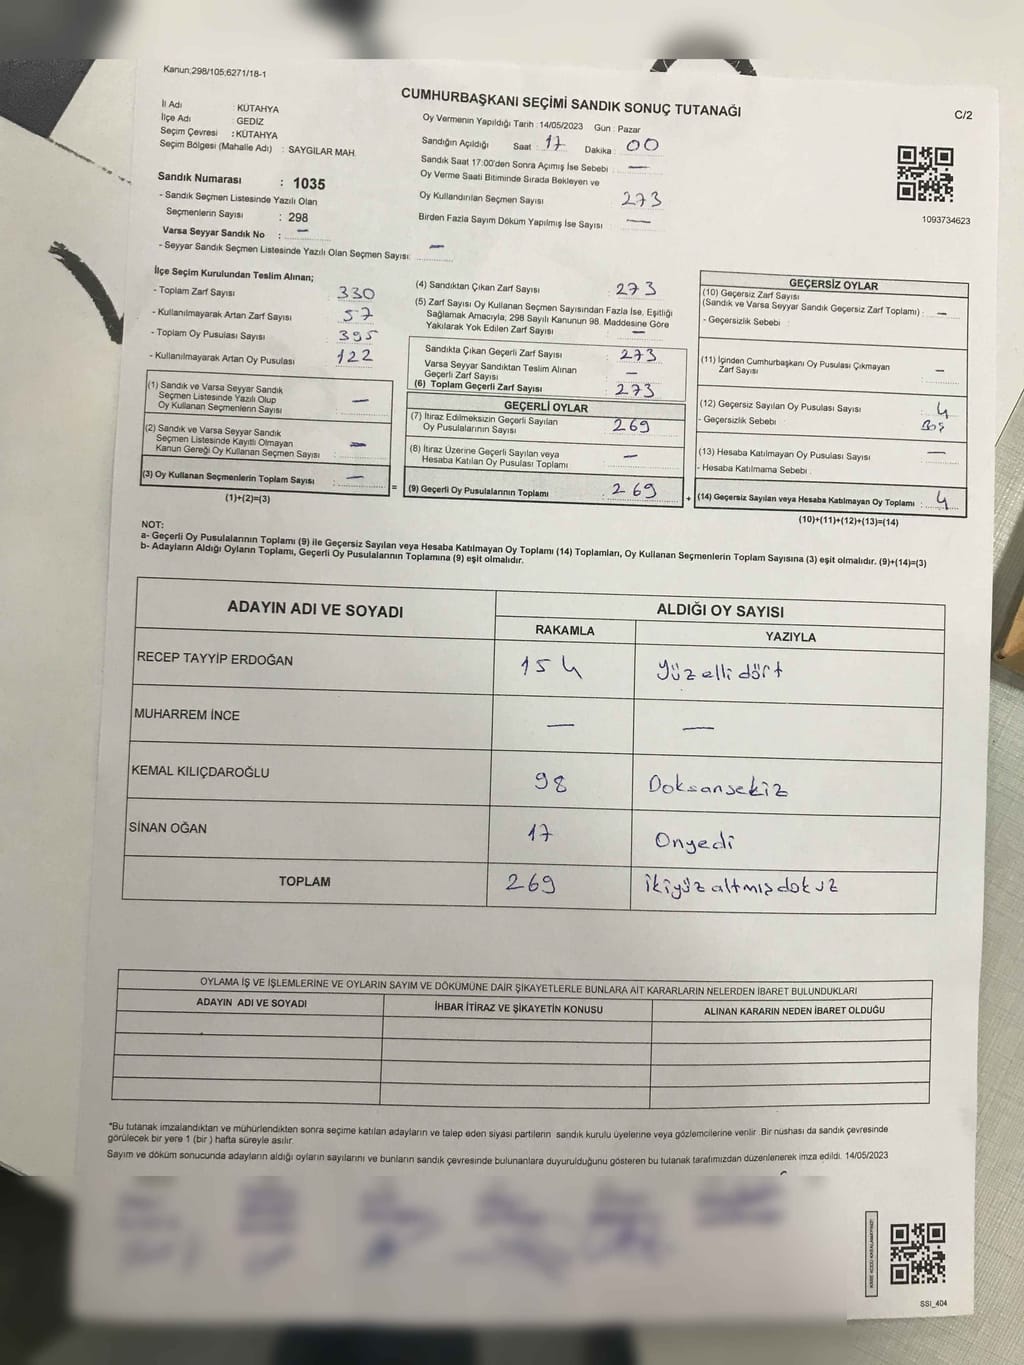 Kanun;298/105;6271/18-1
CUMHURBAŞKANI SEÇİMİ SANDIK SONUÇ TUTANAĞI
C/2
İl Adı : KÜTAHYA
İlçe Adı : GEDİZ
Seçim Çevresi : KÜTAHYA
Seçim Bölgesi (Mahalle Adı) : SAYGILAR MAH.
Sandık Numarası : 1035
- Sandık Seçmen Listesinde Yazılı Olan
Seçmenlerin Sayısı : 298
Varsa Seyyar Sandık No : —
- Seyyar Sandık Seçmen Listesinde Yazılı Olan Seçmen Sayısı: —
Oy Vermenin Yapıldığı Tarih : 14/05/2023 Gün : Pazar
Sandığın Açıldığı Saat : 17 Dakika : 00
Sandık Saat 17:00'den Sonra Açımış İse Sebebi : —
Oy Verme Saati Bitiminde Sırada Bekleyen ve
Oy Kullandırılan Seçmen Sayısı : 273
Birden Fazla Sayım Döküm Yapılmış İse Sayısı : —
1093734623
İlçe Seçim Kurulundan Teslim Alınan;
- Toplam Zarf Sayısı : 330
- Kullanılmayarak Artan Zarf Sayısı : 57
- Toplam Oy Pusulası Sayısı : 395
- Kullanılmayarak Artan Oy Pusulası : 122
(1) Sandık ve Varsa Seyyar Sandık
Seçmen Listesinde Yazılı Olup
Oy Kullanan Seçmenlerin Sayısı : —
(2) Sandık ve Varsa Seyyar Sandık
Seçmen Listesinde Kayıtlı Olmayan
Kanun Gereği Oy Kullanan Seçmen Sayısı : —
(3) Oy Kullanan Seçmenlerin Toplam Sayısı : —
(1)+(2)=(3)
(4) Sandıktan Çıkan Zarf Sayısı : 273
(5) Zarf Sayısı Oy Kullanan Seçmen Sayısından Fazla İse, Eşitliği
Sağlamak Amacıyla, 298 Sayılı Kanunun 98. Maddesine Göre
Yakılarak Yok Edilen Zarf Sayısı : —
Sandıkta Çıkan Geçerli Zarf Sayısı : 273
Varsa Seyyar Sandıktan Teslim Alınan
Geçerli Zarf Sayısı : —
(6) Toplam Geçerli Zarf Sayısı : 273
GEÇERLİ OYLAR
(7) İtiraz Edilmeksizin Geçerli Sayılan
Oy Pusulalarının Sayısı : 269
(8) İtiraz Üzerine Geçerli Sayılan veya
Hesaba Katılan Oy Pusulası Toplamı : —
= (9) Geçerli Oy Pusulalarının Toplamı : 269 +
GEÇERSİZ OYLAR
(10) Geçersiz Zarf Sayısı
(Sandık ve Varsa Seyyar Sandık Geçersiz Zarf Toplamı) : —
- Geçersizlik Sebebi :
(11) İçinden Cumhurbaşkanı Oy Pusulası Çıkmayan
Zarf Sayısı : —
(12) Geçersiz Sayılan Oy Pusulası Sayısı : 4
- Geçersizlik Sebebi : Boş
(13) Hesaba Katılmayan Oy Pusulası Sayısı : —
- Hesaba Katılmama Sebebi :
(14) Geçersiz Sayılan veya Hesaba Katılmayan Oy Toplamı : 4
(10)+(11)+(12)+(13)=(14)
NOT:
a- Geçerli Oy Pusulalarının Toplamı (9) ile Geçersiz Sayılan veya Hesaba Katılmayan Oy Toplamı (14) Toplamları, Oy Kullanan Seçmenlerin Toplam Sayısına (3) eşit olmalıdır. (9)+(14)=(3)
b- Adayların Aldığı Oyların Toplamı, Geçerli Oy Pusulalarının Toplamına (9) eşit olmalıdır.
ADAYIN ADI VE SOYADI
ALDIĞI OY SAYISI
RAKAMLA YAZIYLA
RECEP TAYYİP ERDOĞAN 154 Yüz elli dört
MUHARREM İNCE — —
KEMAL KILIÇDAROĞLU 98 Doksansekiz
SİNAN OĞAN 17 Onyedi
TOPLAM 269 ikiyüz altmışdokuz
OYLAMA İŞ VE İŞLEMLERİNE VE OYLARIN SAYIM VE DÖKÜMÜNE DAİR ŞİKAYETLERLE BUNLARA AİT KARARLARIN NELERDEN İBARET BULUNDUKLARI
ADAYIN ADI VE SOYADI İHBAR İTİRAZ VE ŞİKAYETİN KONUSU ALINAN KARARIN NEDEN İBARET OLDUĞU
*Bu tutanak imzalandıktan ve mühürlendikten sonra seçime katılan adayların ve talep eden siyasi partilerin sandık kurulu üyelerine veya gözlemcilerine verilir .Bir nushası da sandık çevresinde
görülecek bir yere 1 (bir ) hafta süreyle asılır.
Sayım ve döküm sonucunda adayların aldığı oyların sayılarını ve bunların sandık çevresinde bulunanlara duyurulduğunu gösteren bu tutanak tarafımızdan düzenlenerek imza edildi. 14/05/2023
SSI_404